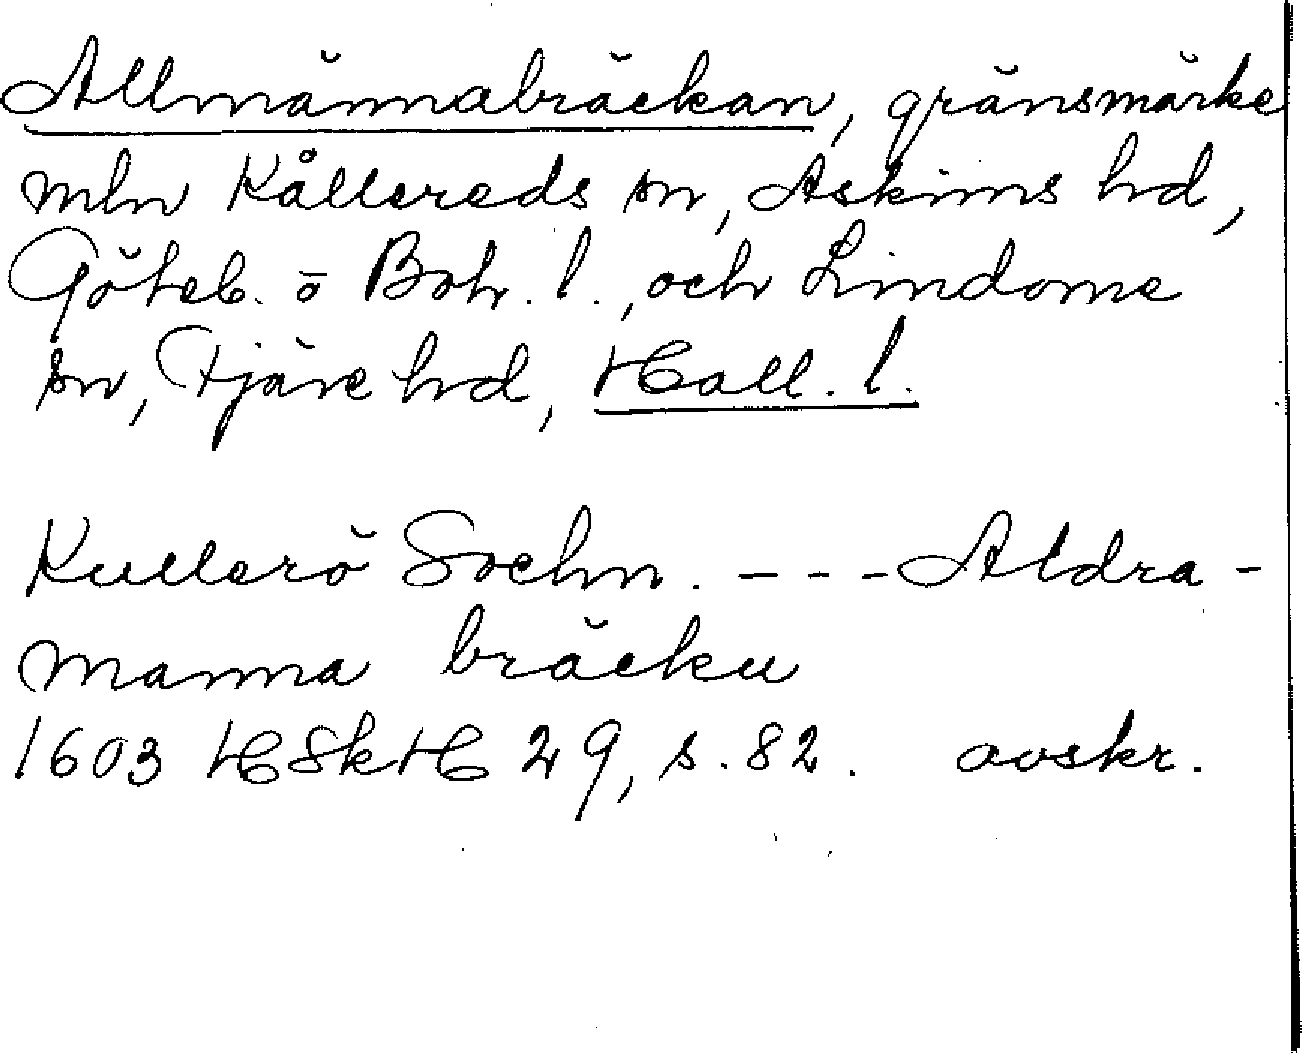 Allmännabräckan, gränsmärke
mln Kållereds sn, Askims hd,
Göteb. ö Boh. l., och Lindome
sn, Fjäre hd, Hall. l.
Kullerö Sochn. --- Aldra-
manna bräcku
1603 HSkH 29, s. 82. avskr.